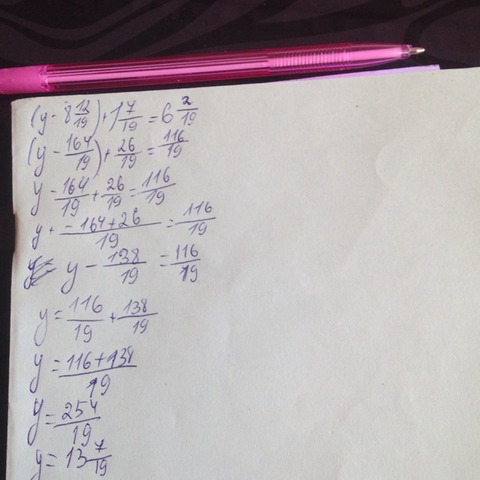 (y - 8 12/19) + 1 7/19 = 6 2/19
(y - 164/19) + 26/19 = 116/19
y - 164/19 + 26/19 = 116/19
y + (-164+26)/19 = 116/19
y - 138/19 = 116/19
y = 116/19 + 138/19
y = (116+138)/19
y = 254/19
y = 13 7/19